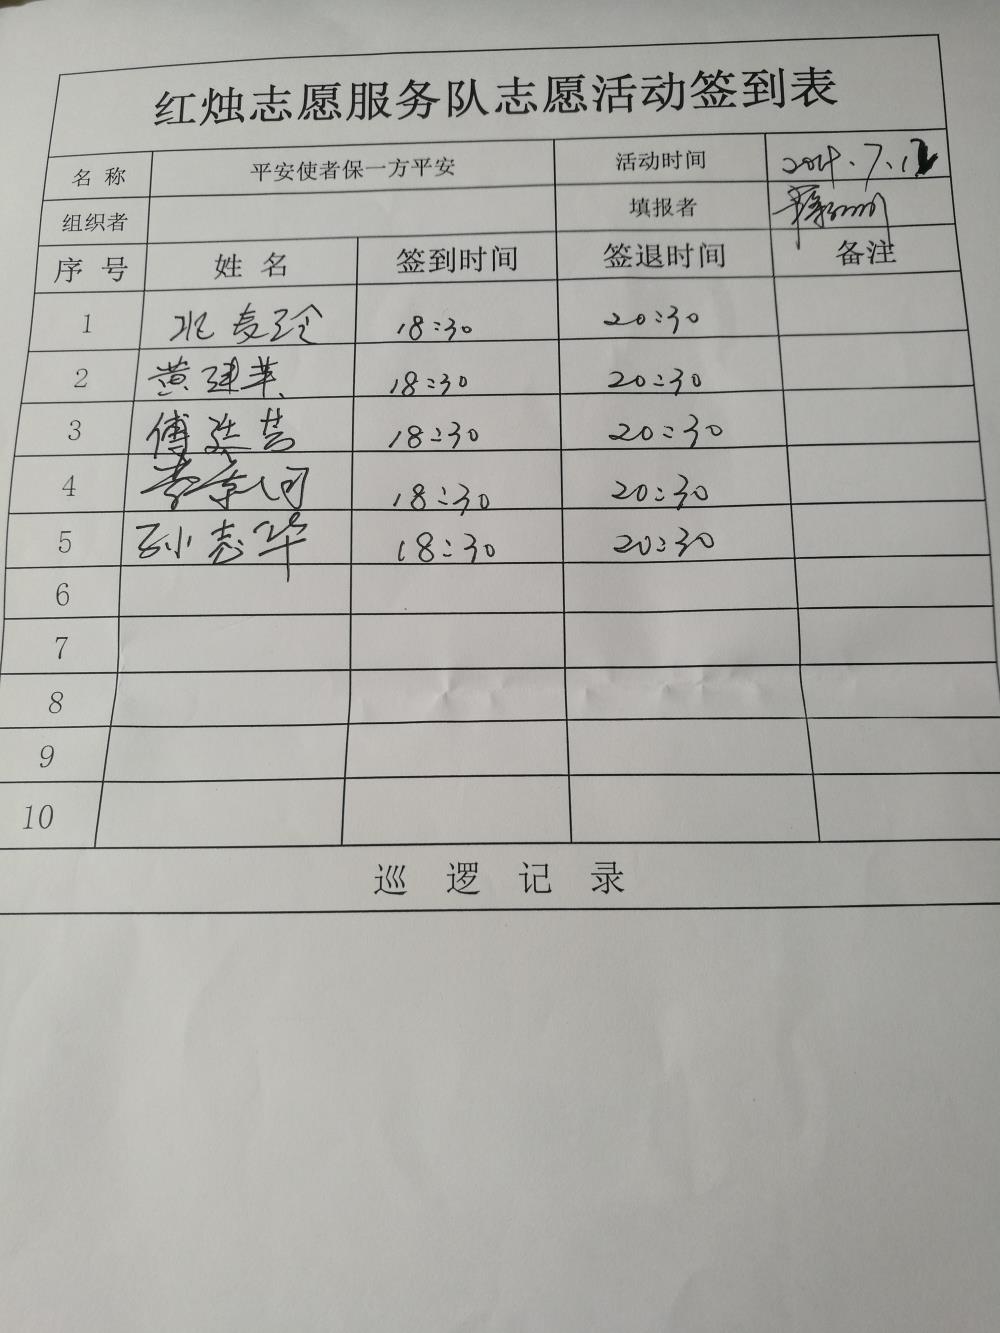 红烛志愿服务队志愿活动签到表
名 称 平安使者保一方平安 活动时间
组织者 填报者
序 号 姓 名 签到时间 签退时间 备注
1 18:30 20:30
2 黄建华 18:30 20:30
3 傅 18:30 20:30
4 18:30 20:30
5 孙志华 18:30 20:30
6
7
8
9
10
巡 逻 记 录